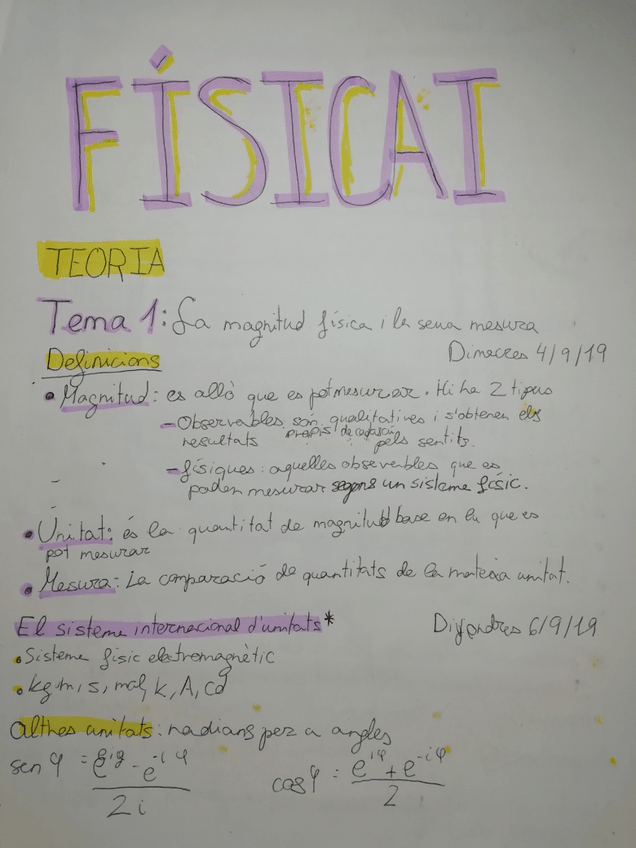 FÍSICA I
TEORIA
Tema 1: La magnitud física i la seva mesura
Dimecres 4/9/19
Definicions
• Magnitud: es allò que es pot mesurar. Hi ha 2 tipus
- Observables són qualitatives i s'obtenen els
resultats propis de cada pels sentits.
- físiques: aquelles observables que es
poden mesurar segons un sistema físic.
• Unitat: és la quantitat de magnitud base en la que es
pot mesurar
• Mesura: La comparació de quantitats de la mateixa unitat.
El sistema internacional d'unitats*
Divendres 6/9/19
• Sistema físic electromagnètic
• kg, m, s, mol, K, A, cd
Altres unitats: radians per a angles
sen φ = e^iφ - e^-iφ / 2i
cos φ = e^iφ + e^-iφ / 2